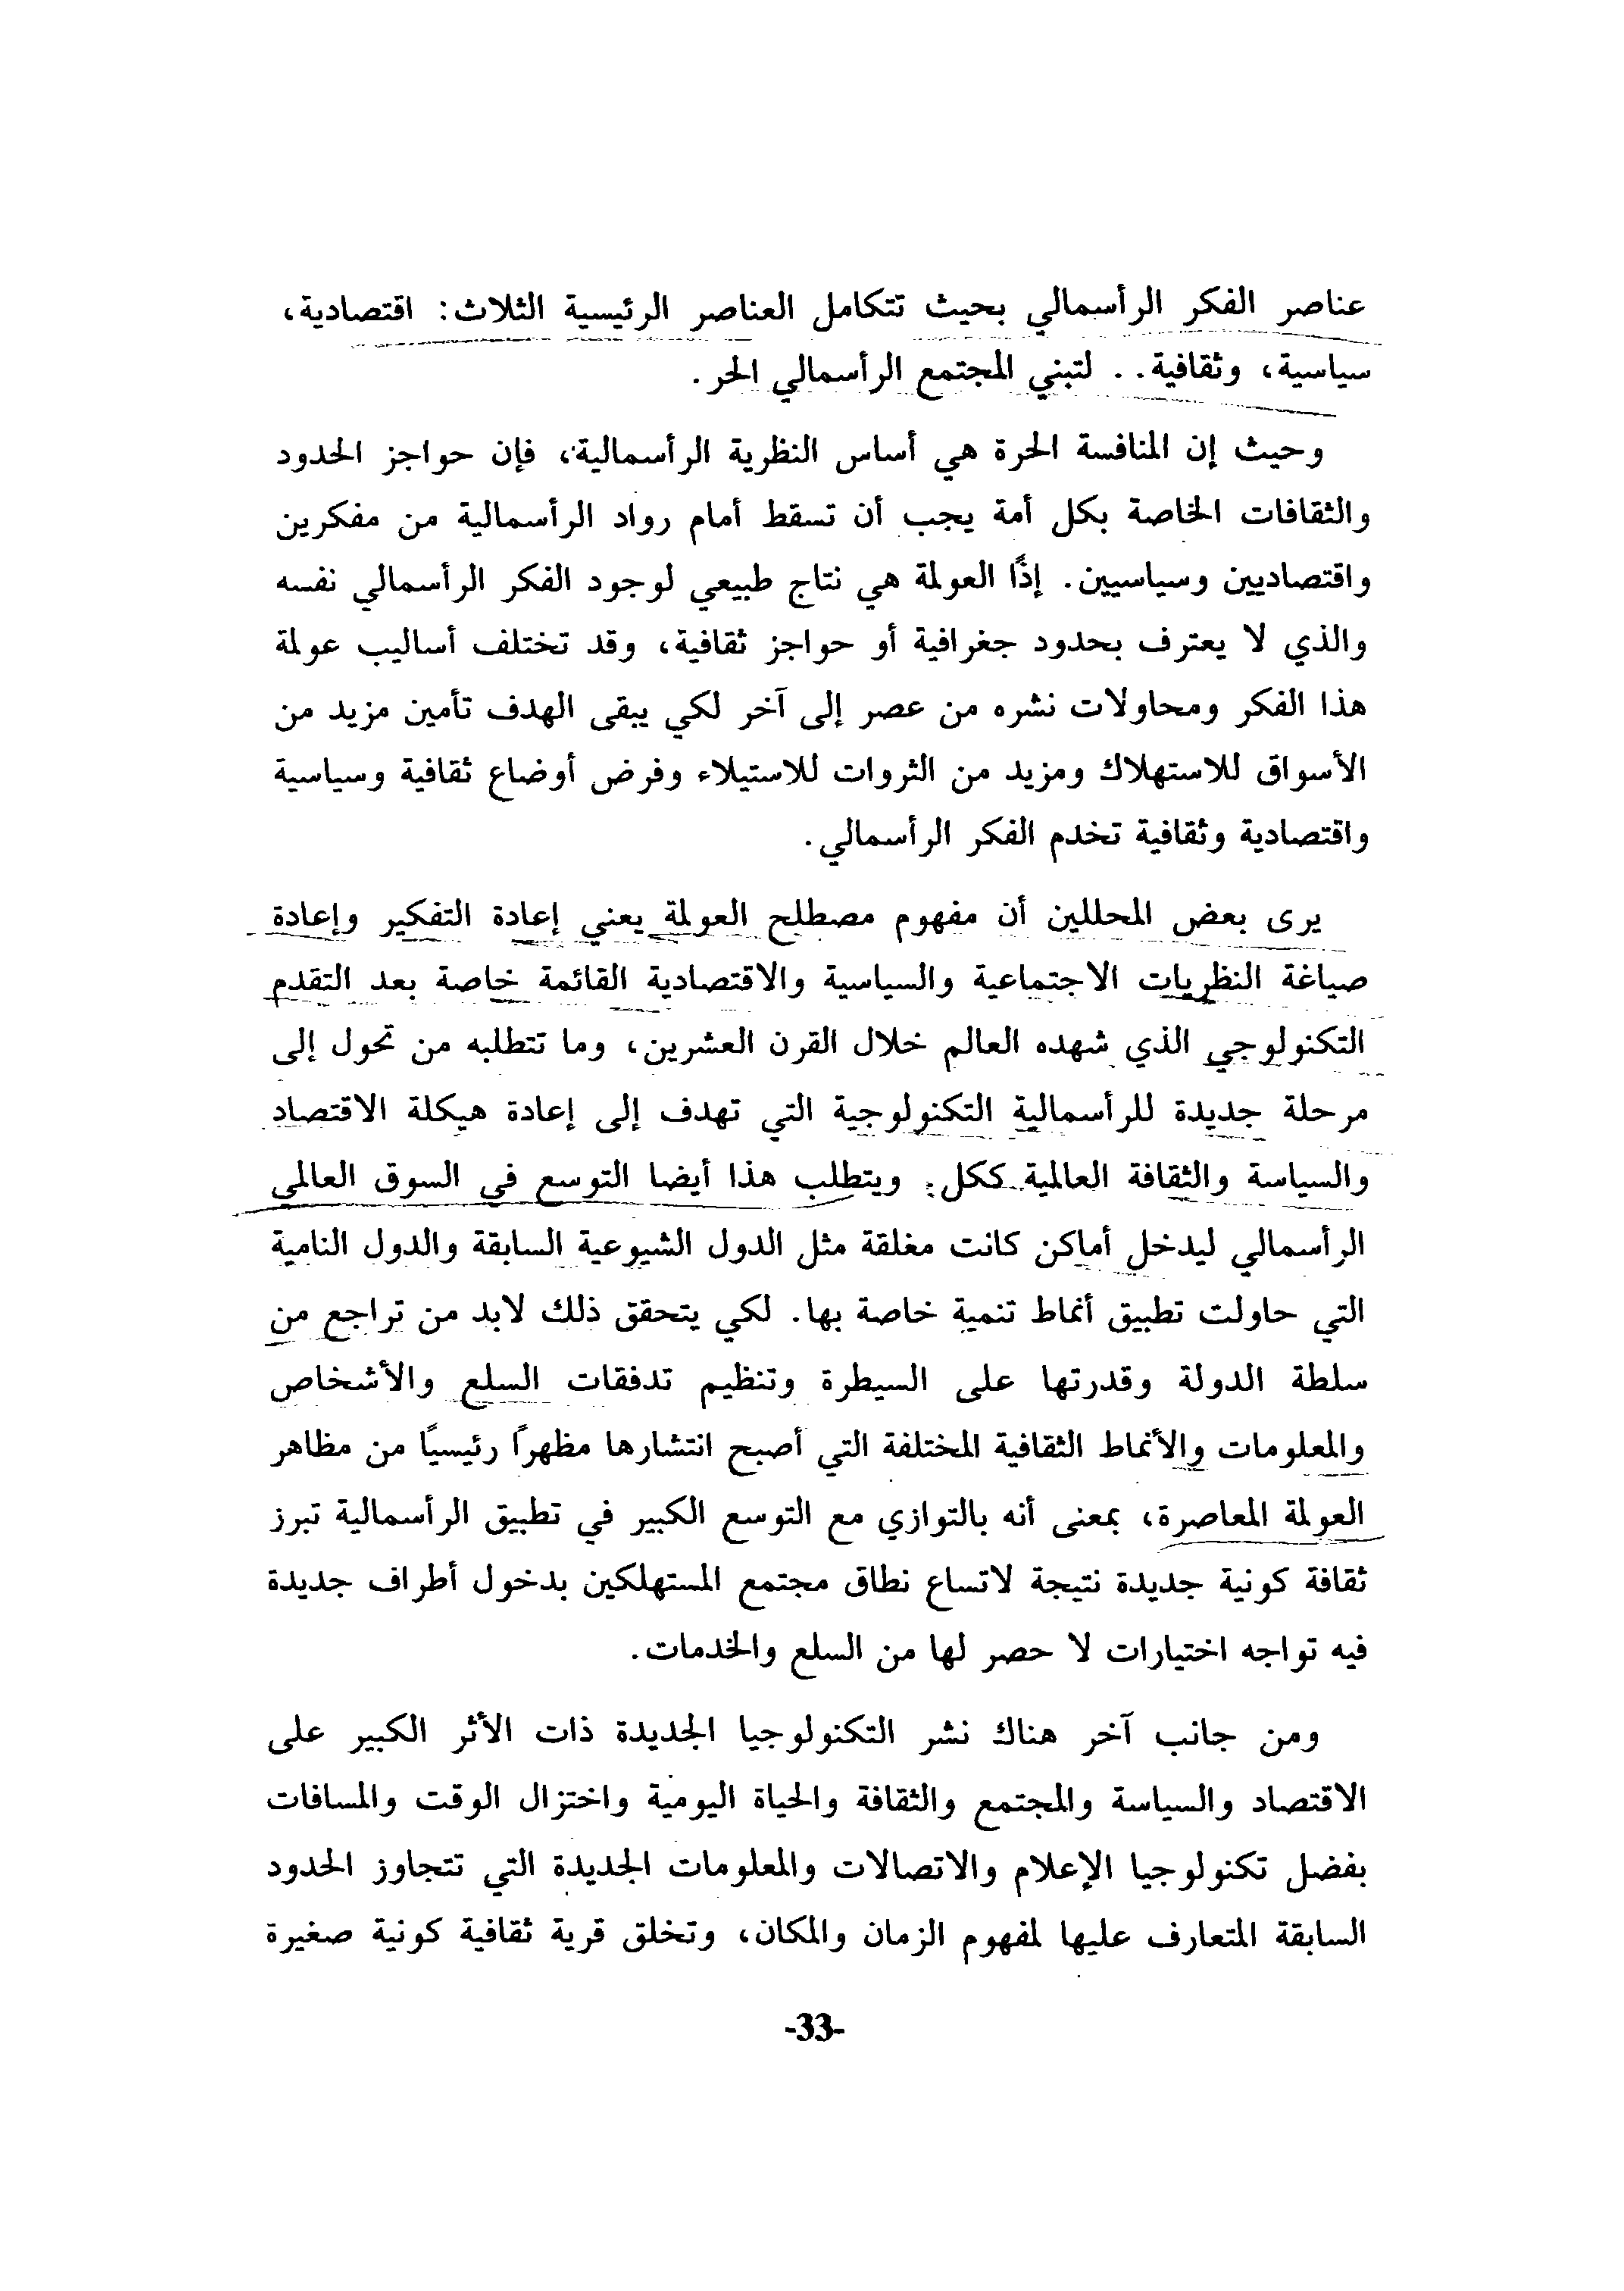 عناصر الفكر الرأسمالي بحيث تتكامل العناصر الرئيسية الثلاث: اقتصادية،
سياسية، وثقافية.. لتبني المجتمع الرأسمالي الحر.
وحيث إن المنافسة الحرة هي أساس النظرية الرأسمالية، فإن حواجز الحدود
والثقافات الخاصة بكل أمة يجب أن تسقط أمام رواد الرأسمالية من مفكرين
واقتصاديين وسياسيين. إذًا العولمة هي نتاج طبيعي لوجود الفكر الرأسمالي نفسه
والذي لا يعترف بحدود جغرافية أو حواجز ثقافية، وقد تختلف أساليب عولمة
هذا الفكر ومحاولات نشره من عصر إلى آخر لكي يبقى الهدف تأمين مزيد من
الأسواق للاستهلاك ومزيد من الثروات للاستيلاء وفرض أوضاع ثقافية وسياسية
واقتصادية وثقافية تخدم الفكر الرأسمالي.
يرى بعض المحللين أن مفهوم مصطلح العولمة يعني إعادة التفكير وإعادة
صياغة النظريات الاجتماعية والسياسية والاقتصادية القائمة خاصة بعد التقدم
التكنولوجي الذي شهده العالم خلال القرن العشرين، وما تتطلبه من تحول إلى
مرحلة جديدة للرأسمالية التكنولوجية التي تهدف إلى إعادة هيكلة الاقتصاد
والسياسة والثقافة العالمية ككل. ويتطلب هذا أيضا التوسع في السوق العالمي
الرأسمالي ليدخل أماكن كانت مغلقة مثل الدول الشيوعية السابقة والدول النامية
التي حاولت تطبيق أنماط تنمية خاصة بها. لكي يتحقق ذلك لابد من تراجع من
سلطة الدولة وقدرتها على السيطرة وتنظيم تدفقات السلع والأشخاص
والمعلومات والأنماط الثقافية المختلفة التي أصبح انتشارها مظهرًا رئيسيًا من مظاهر
العولمة المعاصرة، بمعنى أنه بالتوازي مع التوسع الكبير في تطبيق الرأسمالية تبرز
ثقافة كونية جديدة نتيجة لاتساع نطاق مجتمع المستهلكين بدخول أطراف جديدة
فيه تواجه اختيارات لا حصر لها من السلع والخدمات.
ومن جانب آخر هناك نشر التكنولوجيا الجديدة ذات الأثر الكبير على
الاقتصاد والسياسة والمجتمع والثقافة والحياة اليومية واختزال الوقت والمسافات
بفضل تكنولوجيا الإعلام والاتصالات والمعلومات الجديدة التي تتجاوز الحدود
السابقة المتعارف عليها لمفهوم الزمان والمكان، وتخلق قرية ثقافية كونية صغيرة
-33-